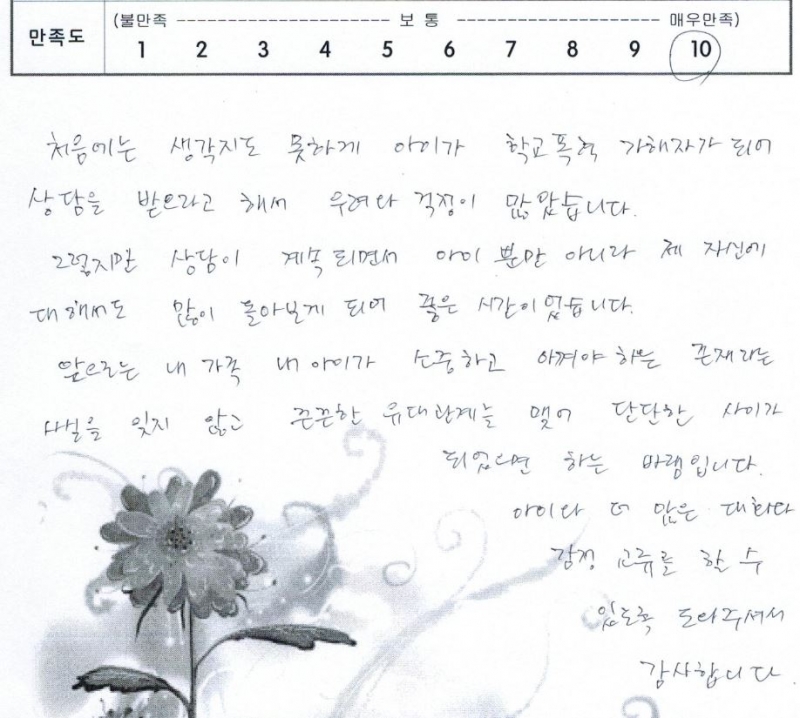 만족도
(불만족 -------------------- 보 통 -------------------- 매우만족)
1 2 3 4 5 6 7 8 9 10
처음에는 생각지도 못하게 아이가 학교폭력 가해자가 되어
상담을 받으라고 해서 우려와 걱정이 많았습니다.
그렇지만 상담이 계속 되면서 아이 뿐만 아니라 제 자신에
대해서도 많이 돌아보게 되어 좋은 시간이었습니다.
앞으로는 내 가족 내 아이가 소중하고 아껴야 하는 존재라는
사실을 잊지 않고 끈끈한 유대관계를 맺어 단단한 사이가
되었으면 하는 바램입니다.
아이와 더 많은 대화와
감정 교류를 할 수
있도록 도와주셔서
감사합니다.